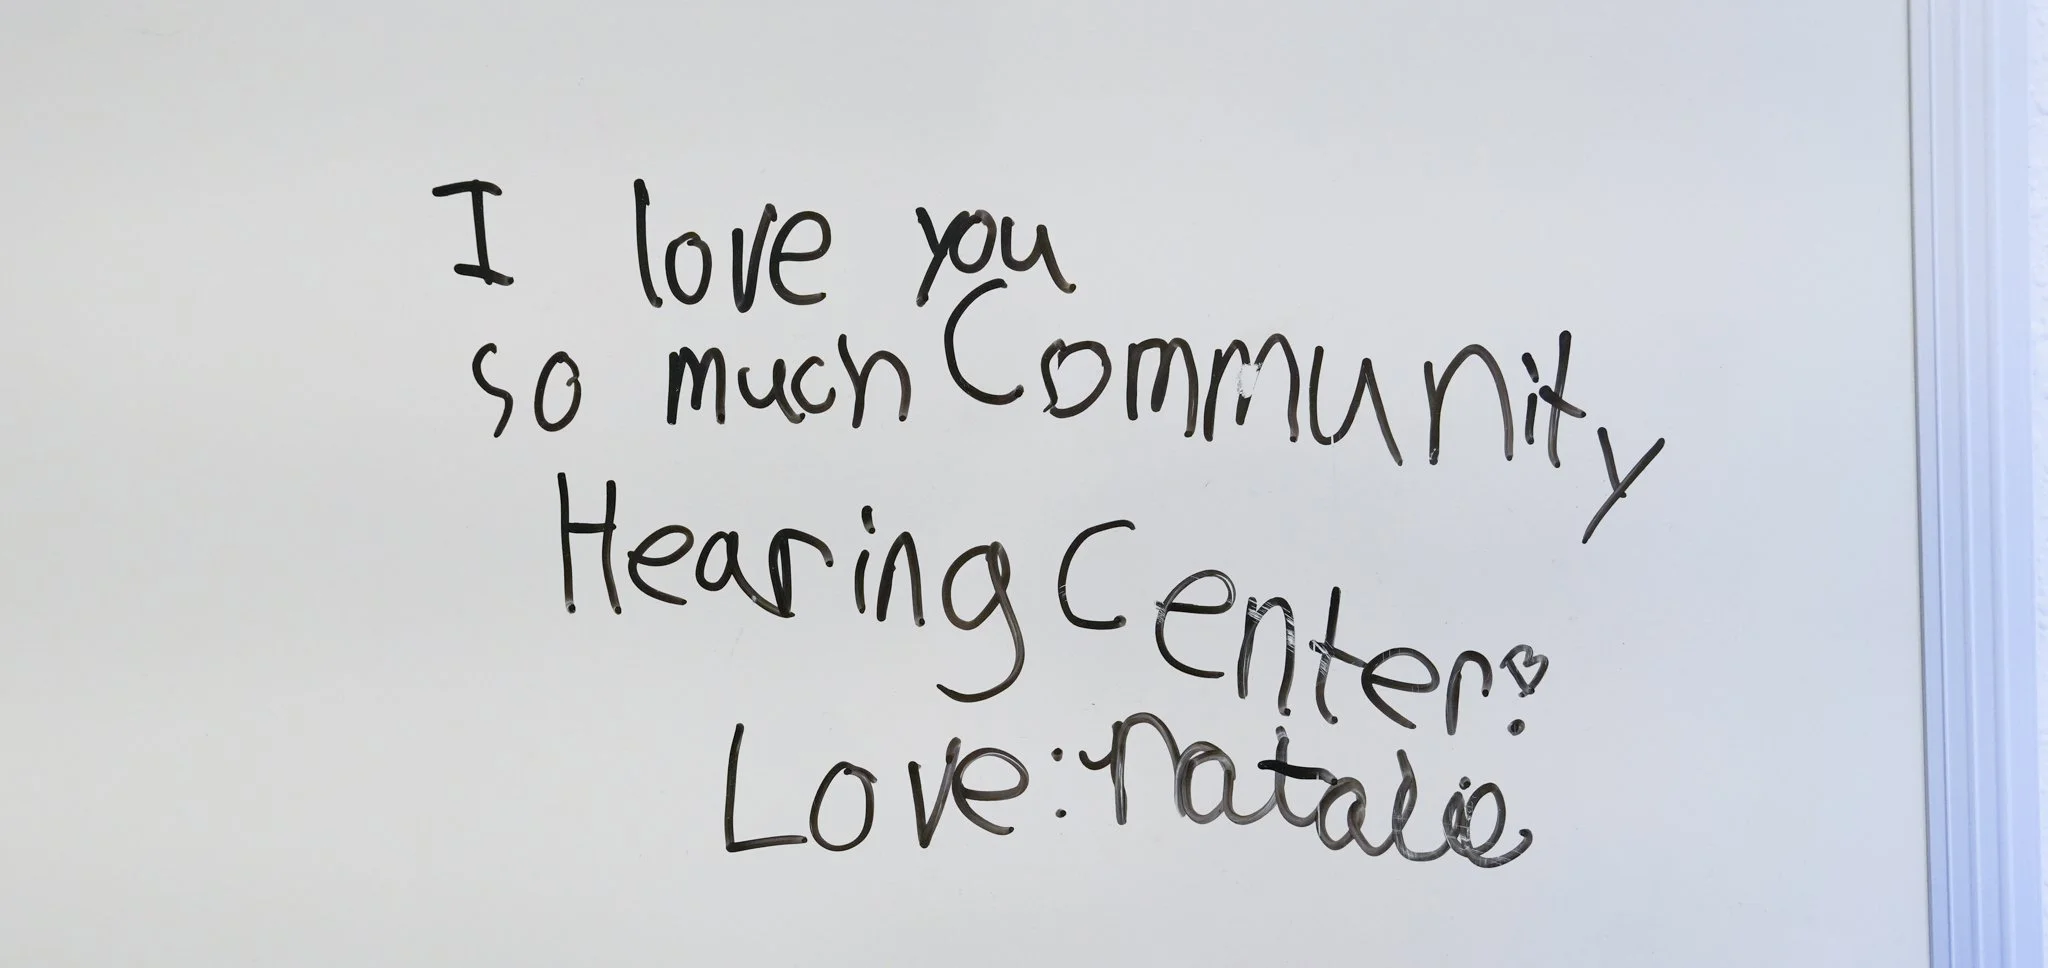 I love you
so much Community
Hearing Center!
Love: Natalie